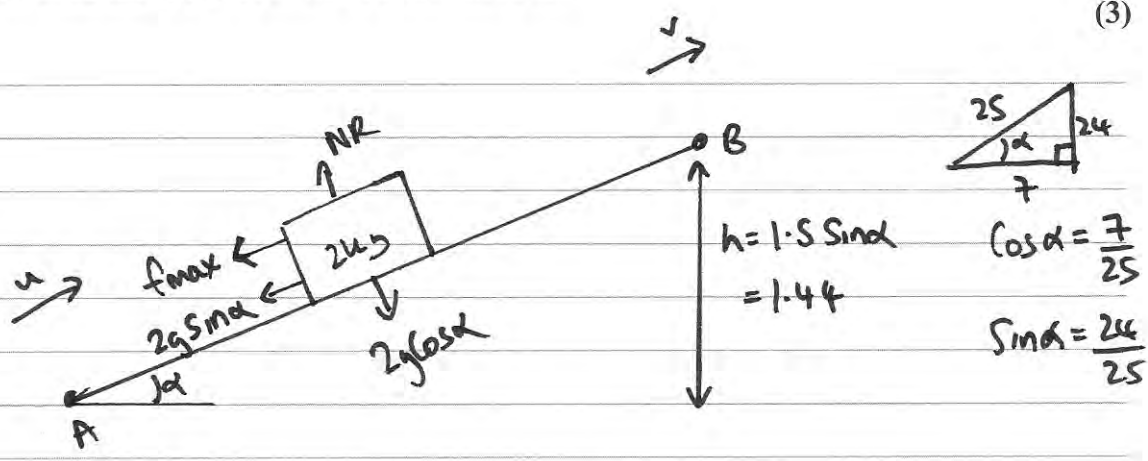 (3)
v
25
24
α
7
NR
B
2kg
fmax
h = 1.5 Sinα
= 1.44
Cosα = 7/25
u
2gSinα
2gCosα
Sinα = 24/25
α
A